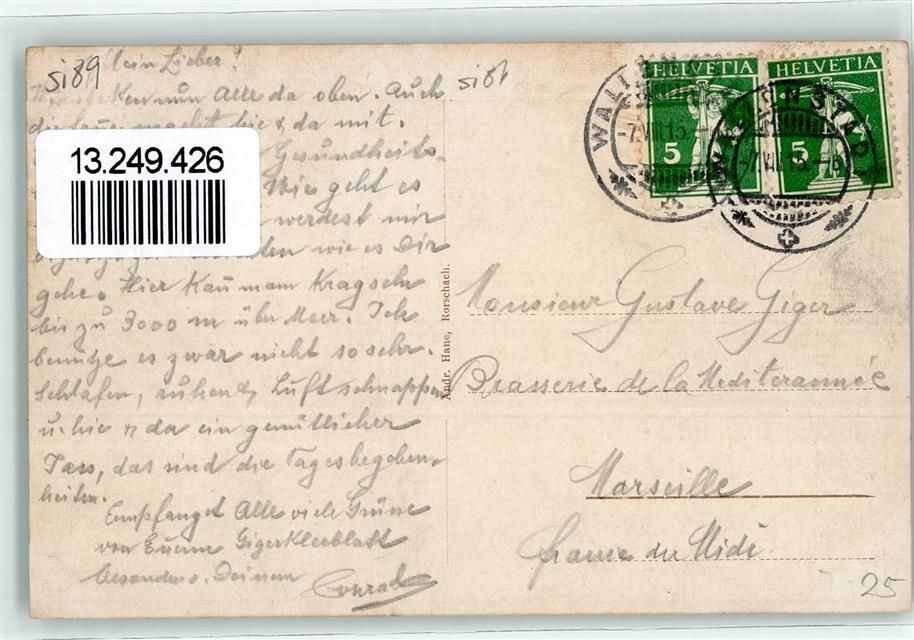 si89
Mein Lieber!
nun Alle da oben. Auch
hie & da mit.
13.249.426
Gesundheits-
Wie geht es
werdest mir
wie es Dir
gehe. Hier kann man Kragseln
bis zu 3000 m über Meer. Ich
benütze es zwar nicht so sehr.
Schlafen, Luft schnappen
u. hie u da ein gemütlicher
Jass, das sind die Tagesbegeben-
heiten.
Empfanget Alle viele Grüsse
von Eurem Gigerkleeblatt
besonders. Deinem
Conrad
Andr. Hane, Rorschach.
si81
HELVETIA
5
HELVETIA
5
WALLENSTAD
-7.VIII.15.-
WALLENSTADT
-7.VIII.15.-
Monsieur Gustave Giger
Brasserie de la Mediterannée
Marseille
france du Midi
25